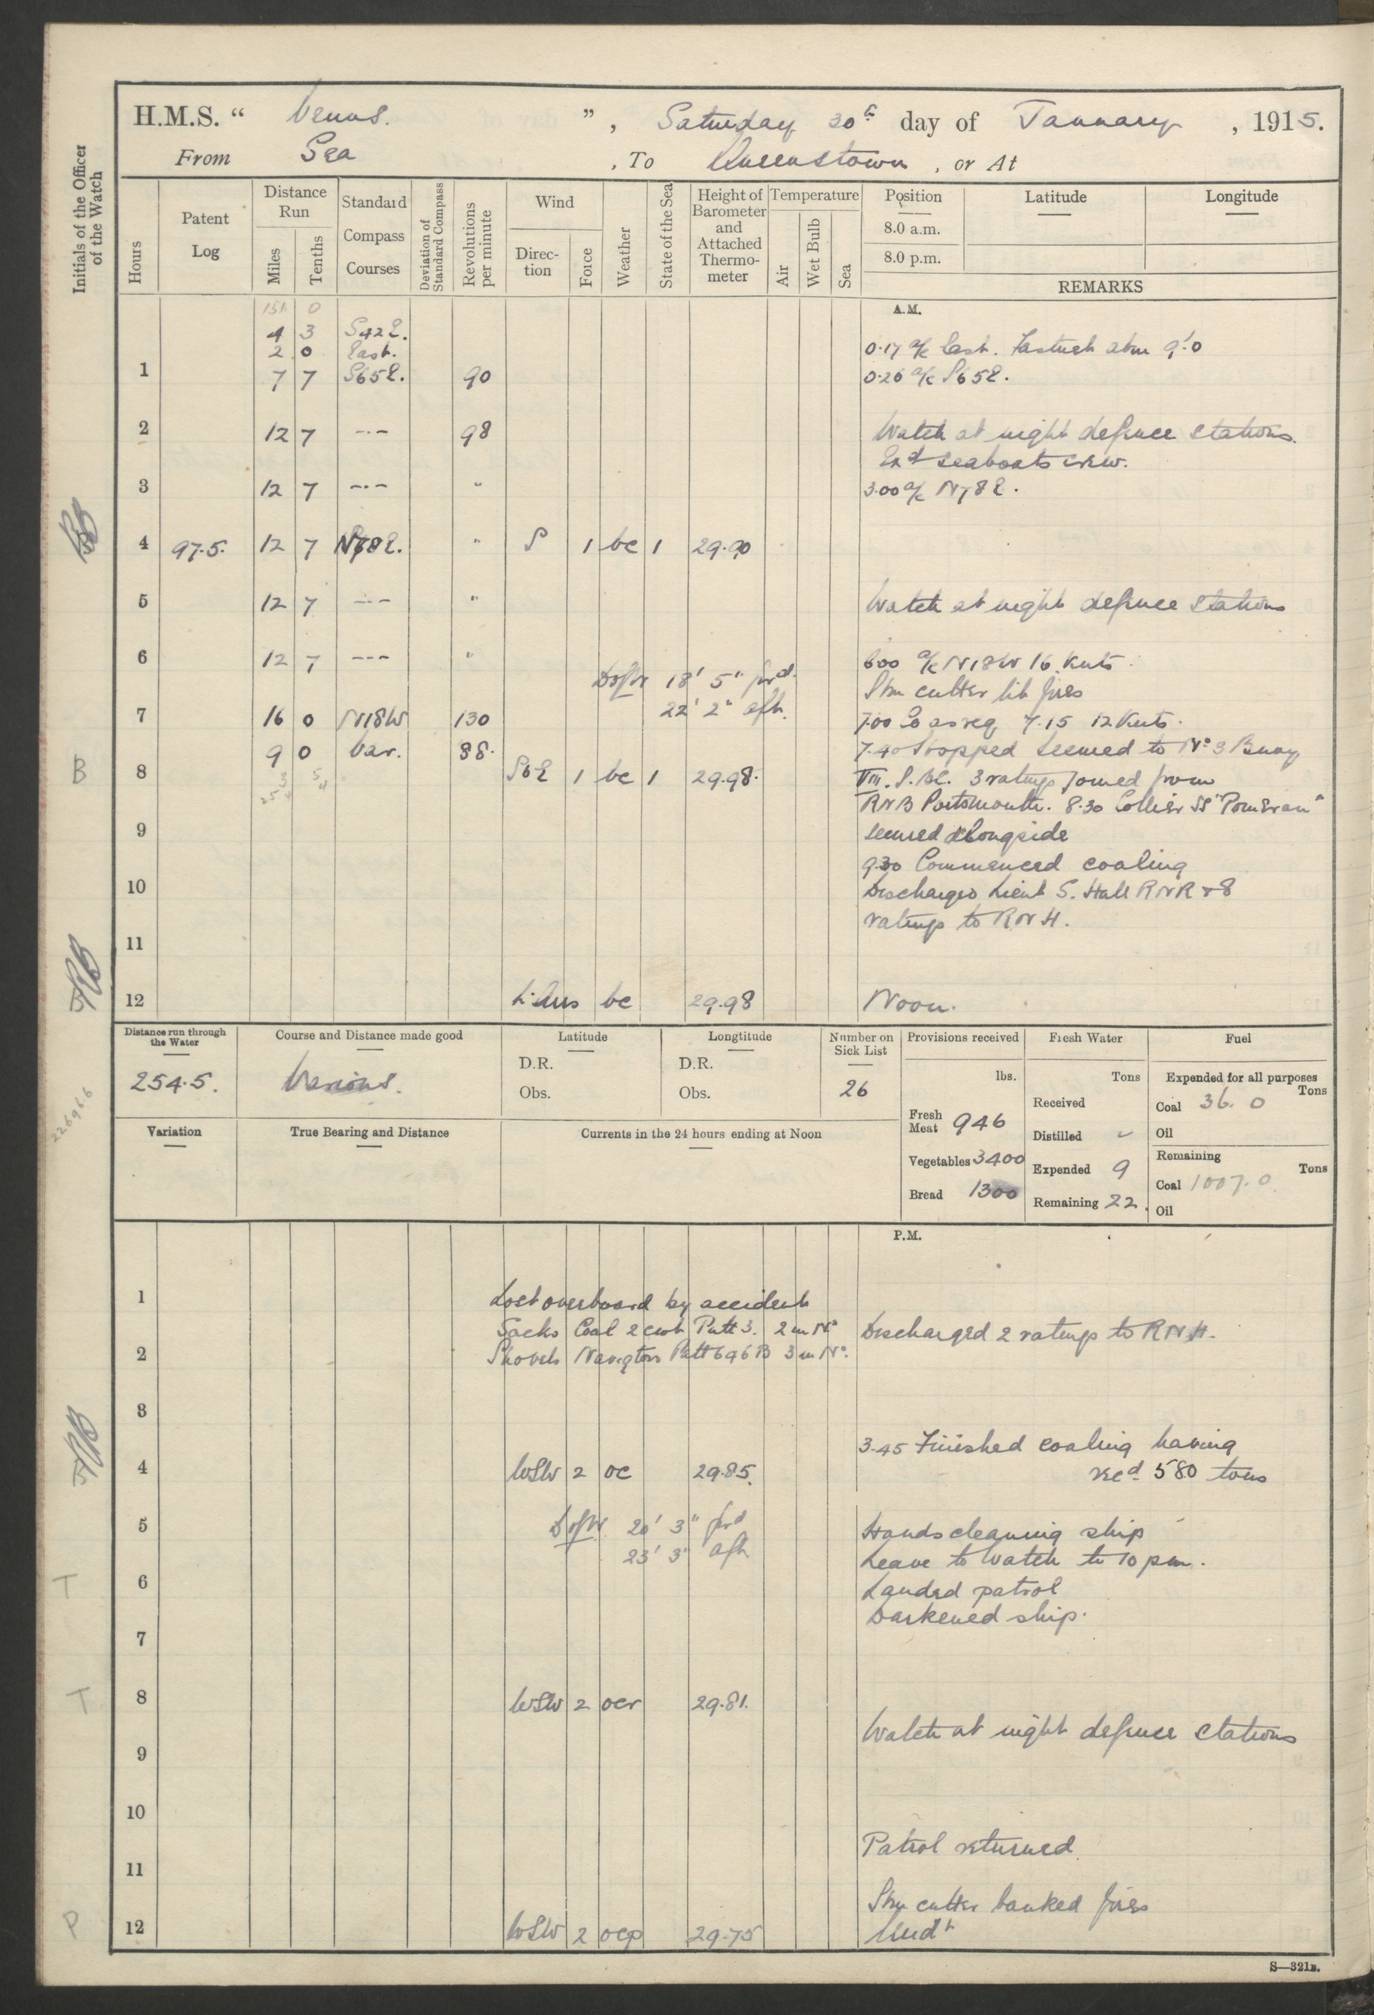 H.M.S. “ Venus. ” , Saturday 30th day of January , 1915.
From Sea , To Queenstown , or At
Initials of the Officer of the Watch
Hours
Patent Log
Distance Run
Miles
Tenths
Standard Compass Courses
Deviation of Standard Compass
Revolutions per minute
Wind
Direc-tion
Force
Weather
State of the Sea
Height of Barometer and Attached Thermo-meter
Temperature
Air
Wet Bulb
Sea
Position
8.0 a.m.
8.0 p.m.
Latitude
Longitude
REMARKS
A.M.
151 0
4 3 S42E.
2 0 East. 0.17 a/c East. Fastnet abm 9'.0
1 7 7 S65E. 90 0.26 a/c S65E.
2 12 7 -.- 98 Watch at night defence stations.
Exd seaboats crew.
3 12 7 -.- " 3.00 a/c N78E.
4 97.5. 12 7 N78E. " S 1 bc 1 29.90
5 12 7 --- " Watch at night defence stations
6 12 7 --- " 6.00 a/c N18W 16 Knts.
D of W 18' 5" ford. Stm cutter lit fires
7 16 0 N18W 130 22' 2" aft. 7.00 Co as req 7.15 12 Knts.
9 0 Var. 88. 7.40 Stopped Secured to No 3 Buoy
B 8 SbE 1 bc 1 29.98. 3 ratings joined from
RNB Portsmouth. 8.30 Collier SS "Pomeran"
9 secured alongside
9.30 Commenced coaling
10 Discharged Lieut S. Hall RNR + 8
ratings to RNH.
11
12 Lt Airs bc 29.98 Noon.
Distance run through the Water
254.5.
Course and Distance made good
Various.
Latitude
D.R.
Obs.
Longtitude
D.R.
Obs.
Number on Sick List
26
Provisions received
lbs.
Fresh Meat 946
Vegetables 3400
Bread 1300
Fresh Water
Tons
Received
Distilled
Expended 9
Remaining 22.
Fuel
Expended for all purposes
Tons
Coal 36. 0
Oil
Remaining
Tons
Coal 1007.0
Oil
226966
Variation
True Bearing and Distance
Currents in the 24 hours ending at Noon
P.M.
1 Lost overboard by accident
Sacks Coal 2 cwt Patt 3. 2 in No Discharged 2 ratings to RNH.
2 Shovels Navigtors Patt 696B 3 in No.
3
3.45 Finished coaling having
4 WSW 2 oc 29.85. recd 580 tons
5 D of W 20' 3" ford Hands cleaning ship
23' 3" aft Leave to Watch to 10 pm.
T 6 Landed patrol
Darkened ship.
7
T 8 WSW 2 ocr 29.81.
Watch at night defence stations
9
10
Patrol returned.
11
Stm cutter banked fires
P 12 WSW 2 ocp 29.75 Midt
S—321B.